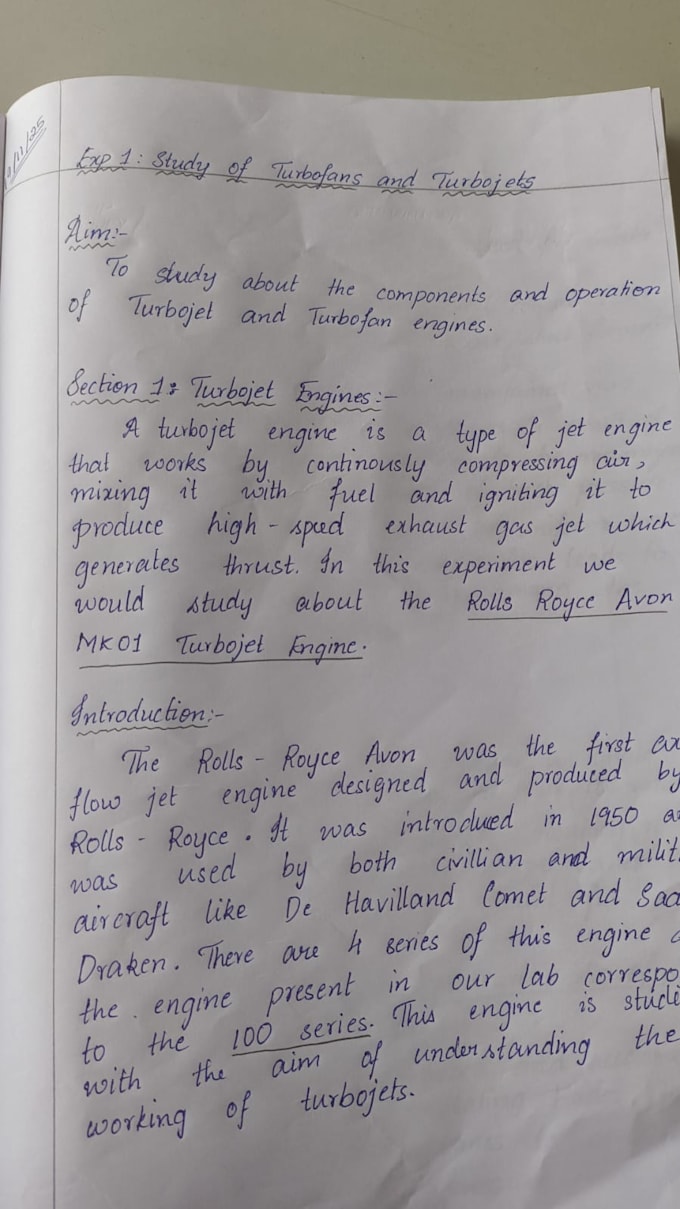 /11/25
Exp 1: Study of Turbofans and Turbojets
Aim:-
To study about the components and operation
of Turbojet and Turbofan engines.
Section 1: Turbojet Engines:-
A turbojet engine is a type of jet engine
that works by continously compressing air,
mixing it with fuel and igniting it to
produce high-speed exhaust gas jet which
generates thrust. In this experiment we
would study about the Rolls Royce Avon
MK01 Turbojet Engine.
Introduction:-
The Rolls-Royce Avon was the first
flow jet engine designed and produced by
Rolls-Royce. It was introduced in 1950
was used by both civillian and milit
aircraft like De Havilland Comet and Saa
Draken. There are 4 series of this engine
the engine present in our lab correspo
to the 100 series. This engine is studi
with the aim of understanding the
working of turbojets.